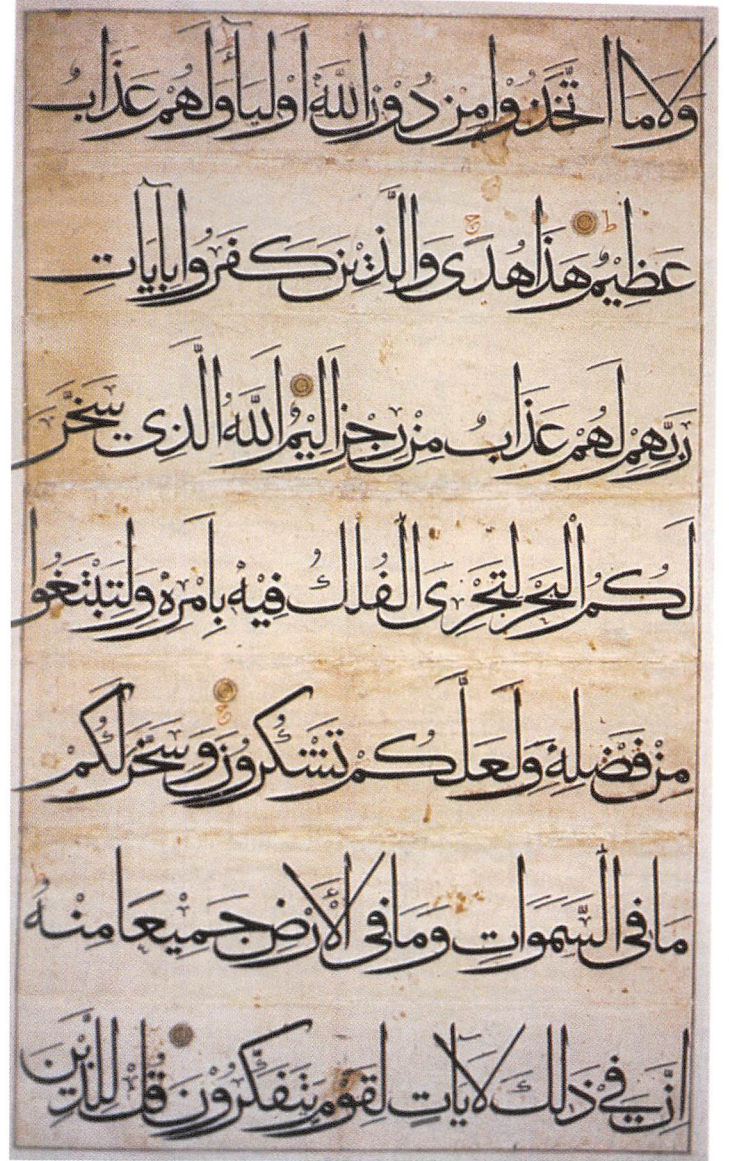 وَلَا مَا اتَّخَذُوا مِنْ دُوْنِ اللَّهِ اَوْلِيَآءَ وَلَهُمْ عَذَابٌ
عَظِيْمٌ هَذَا هُدًى وَالَّذِيْنَ كَفَرُوا بِآيَاتِ
رَبِّهِمْ لَهُمْ عَذَابٌ مِنْ رِجْزٍ اَلِيْمٌ اَللَّهُ الَّذِى سَخَّرَ
لَكُمُ الْبَحْرَ لِتَجْرِىَ الْفُلْكُ فِيْهِ بِاَمْرِهِ وَلِتَبْتَغُوا
مِنْ فَضْلِهِ وَلَعَلَّكُمْ تَشْكُرُوْنَ وَسَخَّرَ لَكُمْ
مَا فِى السَّمَوَاتِ وَمَا فِى الْأَرْضِ جَمِيْعًا مِنْهُ
اِنَّ فِيْ ذَلِكَ لَآيَاتٍ لِقَوْمٍ يَتَفَكَّرُوْنَ قُلْ لِلَّذِيْنَ